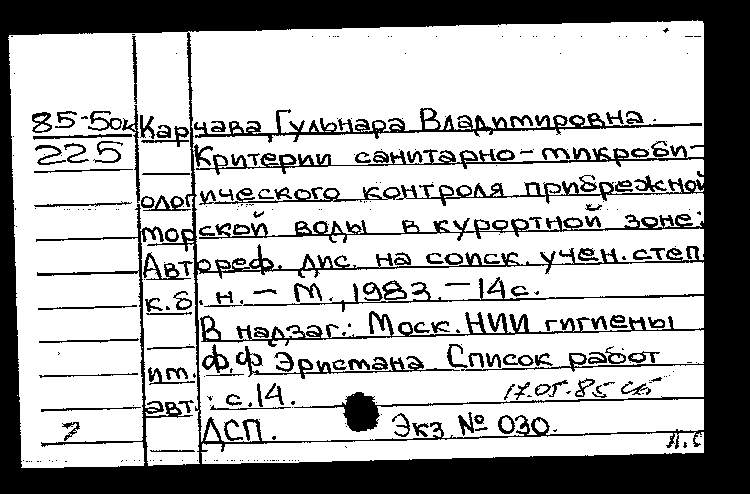 85-5ок Карчава, Гульнара Владимировна.
225 Критерии санитарно-микроби-
ологического контроля прибрежной
морской воды в курортной зоне:
Автореф. дис. на соиск. учен. степ.
к.б.н. - М., 1983. - 14 с.
В надзаг.: Моск. НИИ гигиены
им. Ф.Ф. Эрисмана Список работ
авт.: с. 14. 17.05.85 сб
7 ДСП. Экз. № 030.
Л.С